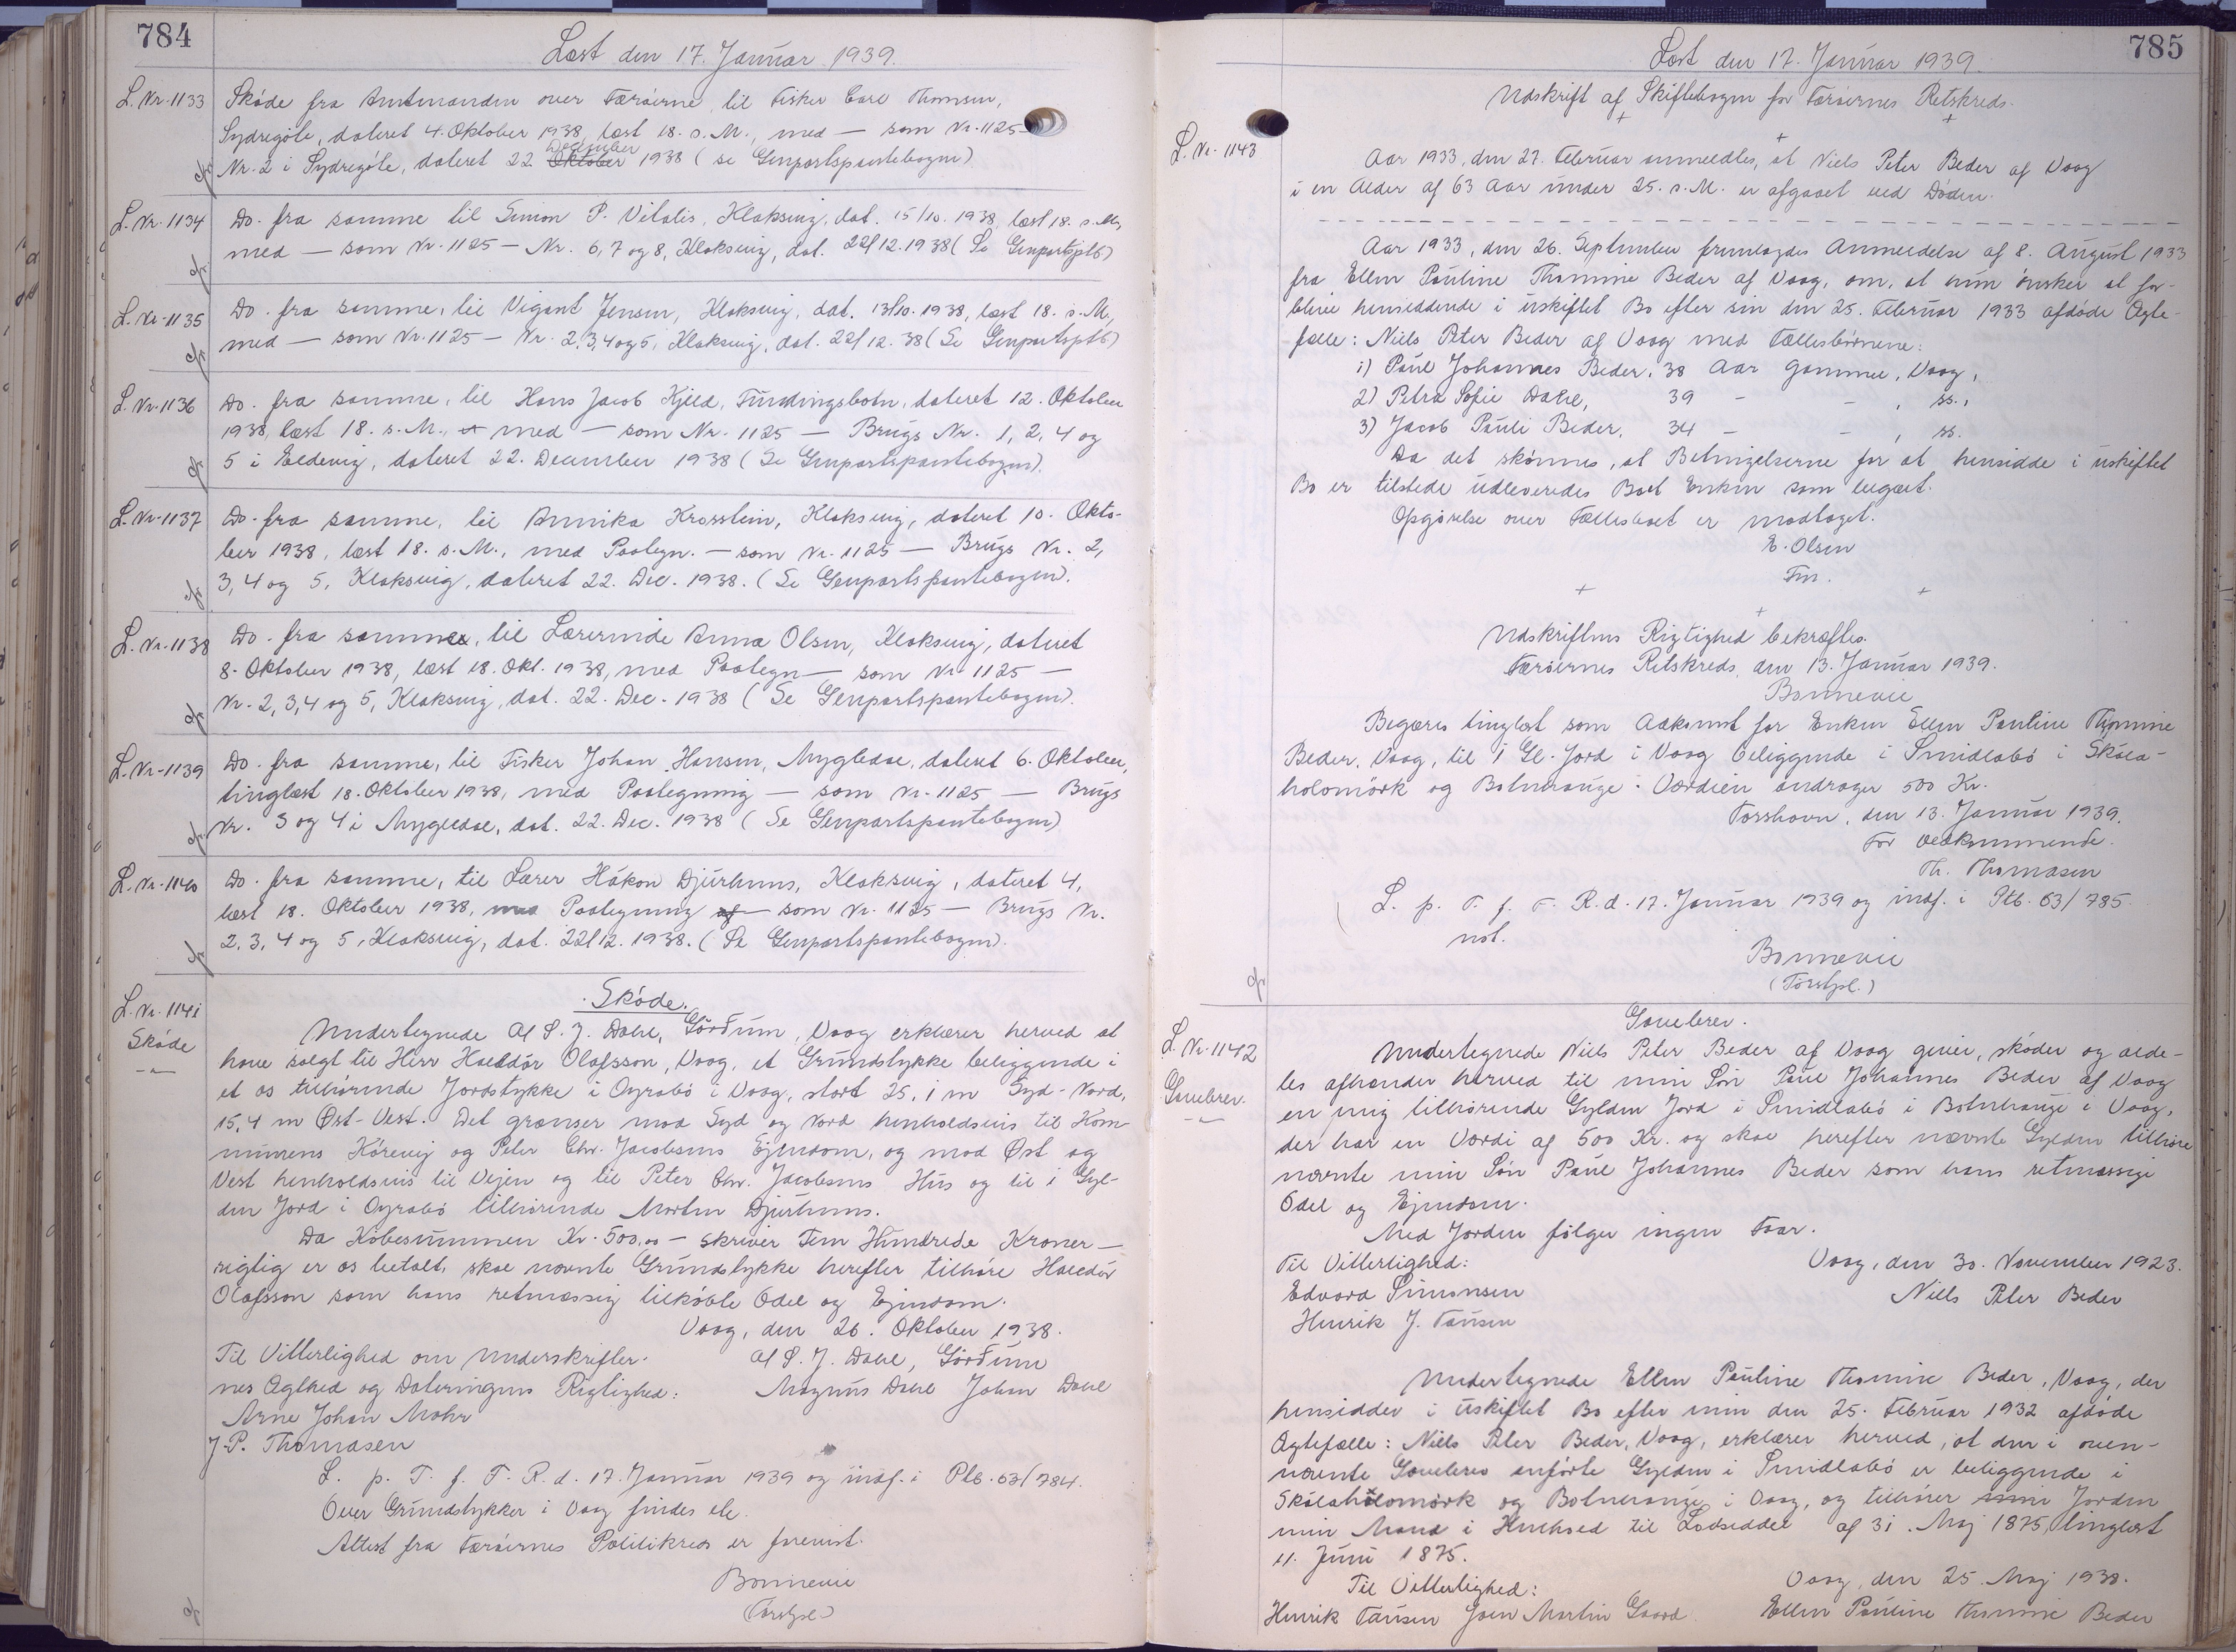 784
Læst den 17. Januar 1939.
L. Nr. 1133 Skøde fra Amtmanden over Færøerne til Fisker Carl Thomsen,
Sydregøte, dateret 4. Oktober 1938, læst 18. s. M., med — som Nr. 1125 —
Nr. 2 i Sydregøte, dateret 22 Oktober December 1938 (se Genpartspantebogen)
L. Nr. 1134 Do. fra samme til Simon P. Vitalis, Klaksvig, dat. 15/10. 1938, læst 18. s. M.,
med — som Nr. 1125 — Nr. 6, 7 og 8, Klaksvig, dat. 22/12. 1938 (Se Genpartsptb)
L. Nr. 1135 Do. fra samme, til Vigant Jensen, Klaksvig, dat. 13/10. 1938, læst 18. s. M.,
med — som Nr. 1125 — Nr. 2, 3, 4 og 5, Klaksvig, dat. 22/12. 38 (Se Genpartsptb)
L. Nr. 1136 Do. fra samme, til Hans Jacob Kjeld, Funningsbotn, dateret 12. Oktober
1938, læst 18. s. M., med — som Nr. 1125 — Brugs Nr. 1, 2, 4 og
5 i Eldevig, dateret 22. December 1938 (Se Genpartspantebogen).
L. Nr. 1137 Do. fra samme, til Annika Krosstein, Klaksvig, dateret 10. Okto-
ber 1938, læst 18. s. M., med Paategn. — som Nr. 1125 — Brugs Nr. 2,
3, 4 og 5, Klaksvig, dateret 22. Dec. 1938. (Se Genpartspantebogen).
L. Nr. 1138 Do. fra samme, til Lærerinde Anna Olsen, Klaksvig, dateret
8. Oktober 1938, læst 18. Okt. 1938, med Paategn — som Nr 1125 —
Nr. 2, 3, 4 og 5, Klaksvig, dat. 22. Dec. 1938 (Se Genpartspantebogen).
L. Nr. 1139 Do. fra samme, til Fisker Johan Hansen, Mygledal, dateret 6. Oktober,
tinglæst 18. Oktober 1938, med Paategning — som Nr. 1125 — Brugs
Nr. 3 og 4 i Mygledal, dat. 22. Dec. 1938 (Se Genpartspantebogen)
L. Nr. 1140 Do. fra samme, til Lærer Hákon Djurhuus, Klaksvig, dateret 4,
læst 18. Oktober 1938, med Paategning af — som Nr. 1125 — Brugs Nr.
2, 3, 4 og 5, Klaksvig, dat. 22/12. 1938. (Se Genpartspantebogen).
L. Nr. 1141
Skøde
Skøde.
Undertegnede Al S. J. Dahl, Görðum, Vaag erklærer herved at
have solgt til Herr Halldór Olafsson, Vaag, et Grundstykke beliggende i
et os tilhørende Jordstykke i Ognabø i Vaag, stort 25,1 m Syd-Nord,
15,4 m Øst-Vest. Det grænser mod Syd og Nord henholdsvis til Kom-
munens Kørevej og Peter Chr. Jacobsens Ejendom, og mod Øst og
Vest henholdsvis til Vejen og til Peter Chr. Jacobsens Hus og til 1 Gyl-
den Jord i Ognabø tilhørende Morten Djurhuus.
Da Købesummen Kr. 500,00 — skriver Fem Hundrede Kroner —
rigtig er os betalt, skal nævnte Grundstykke herefter tilhøre Halldór
Olafsson som hans retmæssig tilkøbte Odel og Ejendom.
Vaag, den 26. Oktober 1938.
Til Vitterlighed om Underskrifter- Al S. J. Dahl, Görðum
nes Ægthed og Dateringens Rigtighed: Magnus Dahl Johan Dahl
Arne Johan Mohr
J. P. Thomasen
L. p. T. f. F. R. d. 17. Januar 1939 og indf. i Ptb. 63/784.
Over Grundstykker i Vaag findes ele.
Attest fra Færøernes Politikreds er forevist.
Bonnevie
(Forstpl.)
785
Læst den 17. Januar 1939.
L. Nr. 1143
Udskrift af Skiftebogen for Færøernes Retskreds.
Aar 1933, den 27. Februar anmeldtes, at Niels Peter Beder af Vaag
i en Alder af 63 Aar under 25. s. M. er afgaaet ved Døden.
Aar 1933, den 26. September fremlagdes Anmeldelse af 8. August 1933
fra Ellen Pauline Thomine Beder af Vaag, om, at hun ønsker at for-
blive hensiddende i uskiftet Bo efter sin den 25. Februar 1933 afdøde Ægte-
fælle: Niels Peter Beder af Vaag med Fællesbørnene:
1) Paul Johannes Beder, 38 Aar gammel, Vaag,
2) Petra Sofie Dahl, 39 - - , ss.,
3) Jacob Pauli Beder, 34 - - , ss.
Da det skønnes, at Betingelserne for at hensidde i uskiftet
Bo er tilstede udleveredes Boet Enken som begært.
Opgørelse over Fællesboet er modtaget.
E. Olsen
Fm.
Udskriftens Rigtighed bekræftes.
Færøernes Retskreds, den 13. Januar 1939.
Bonnevie
Begæres tinglæst som Adkomst for Enken Ellen Pauline Thomine
Beder, Vaag, til 1 Gl. Jord i Vaag beliggende i Smidlabø i Skála-
holomörk og Botnhauge. Værdien andrager 500 Kr.
Torshavn, den 13. Januar 1939.
For Vedkommende.
Th. Thomasen
L. p. T. f. F. R. d. 17. Januar 1939 og indf. i Ptb. 63/785.
not.
Bonnevie
(Forstpl.)
L. Nr. 1142
Gavebrev.
Gavebrev.
Undertegnede Niels Peter Beder af Vaag giver, skøder og alde-
les afhænder herved til min Søn Paul Johannes Beder af Vaag
en mig tilhørende Gylden Jord i Smidlabø i Botnhauge i Vaag,
der har en Værdi af 500 Kr. og skal herefter nævnte Gylden tilhøre
nævnte min Søn Paul Johannes Beder som hans retmæssige
Odel og Ejendom.
Med Jorden følger ingen Faar.
Til Vitterlighed: Vaag, den 30. November 1923.
Edvard Simonsen Niels Peter Beder
Henrik J. Tausen
Undertegnede Ellen Pauline Thomine Beder, Vaag, der
hensidder i uskiftet Bo efter min den 25. Februar 1932 afdøde
Ægtefælle: Niels Peter Beder, Vaag, erklærer herved, at den i oven-
nævnte Gavebrev anførte Gylden i Smidlabø er beliggende i
Skálahólomörk og Botnhauge i Vaag, og tilhører Jorden
min Mand i Henhold til Lodseddel af 31. Maj 1875, tinglæst
11. Juni 1875.
Til Vitterlighed: Vaag, den 25. Maj 1938.
Henrik Tausen Joen Martin Gaard Ellen Pauline Thomine Beder